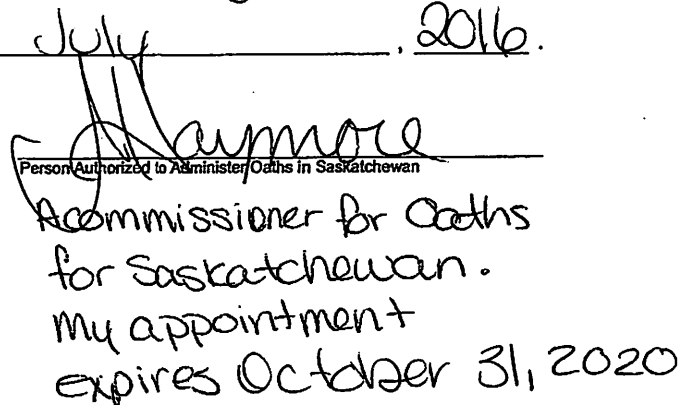 July, 2016.
Person Authorized to Administer Oaths in Saskatchewan
A commissioner for Oaths
for Saskatchewan.
my appointment
expires October 31, 2020